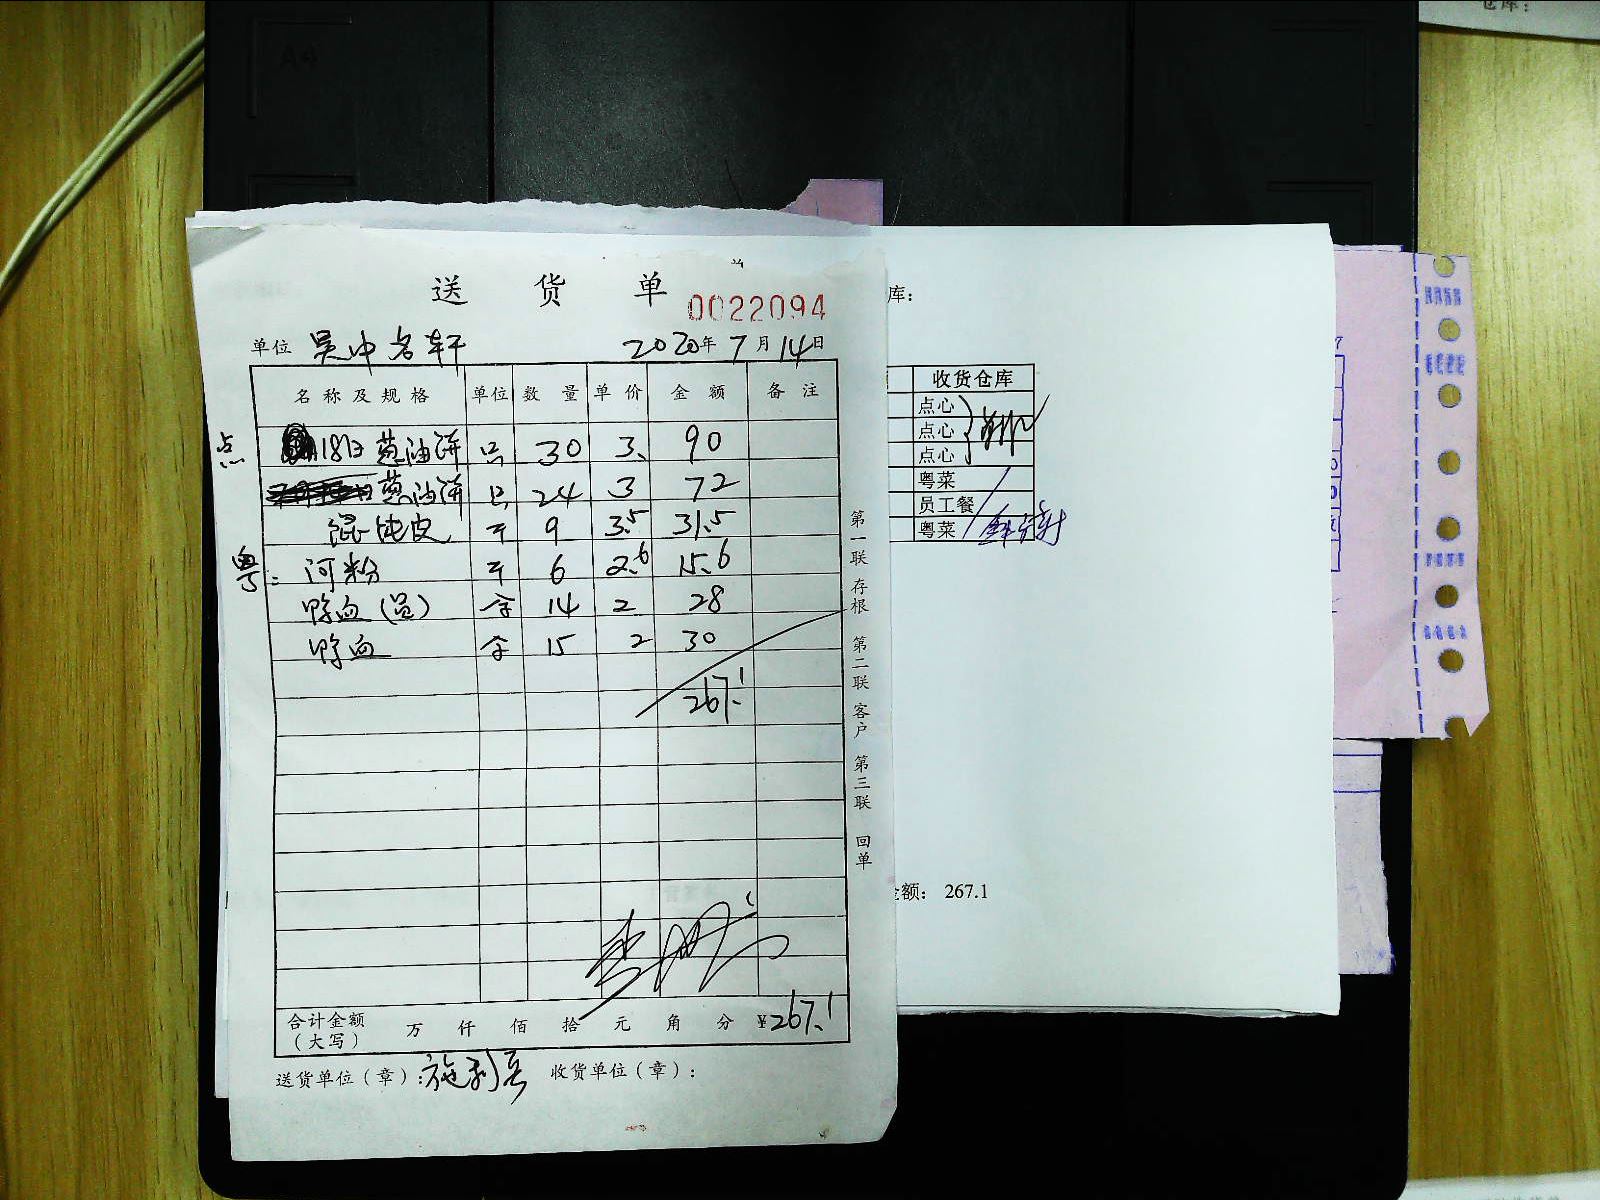 仓库：
A4
送货单
0022094
单位 吴中名轩 2020年7月14日
名称及规格 单位 数量 单价 金额 备注
点 18日葱油饼 只 30 3. 90
葱油饼 只 24 3 72
馄饨皮 斤 9 3.5 31.5
粤: 河粉 斤 6 2.6 15.6
鸭血 14 2 28
鸭血 15 2 30
267.1
合计金额（大写） 万 仟 佰 拾 元 角 分 ¥267.1
送货单位（章）：施利 收货单位（章）：
第一联 存根 第二联 客户 第三联 回单
库：
收货仓库
点心
点心
点心
粤菜
员工餐
粤菜
金额： 267.1